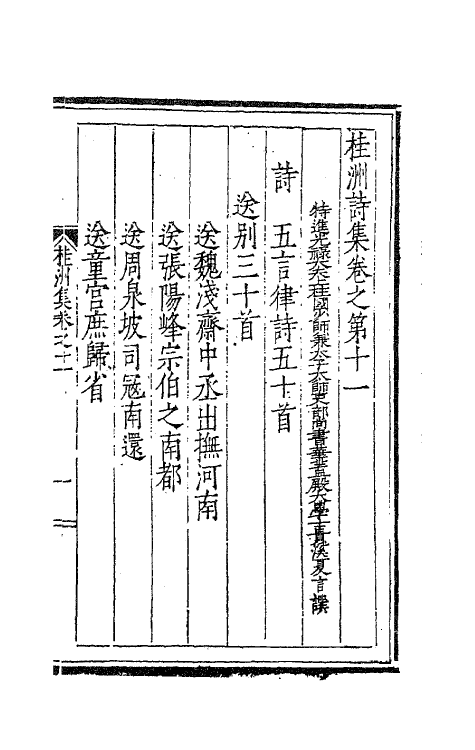 桂洲詩集卷之第十一
特進光祿大夫上柱國少師兼太子太師吏部尚書華蓋殿大學士貴溪夏言譔
詩　五言律詩五十首
送别三十首
送魏淺齋中丞出撫河南
送張陽峰宗伯之南都
送周泉坡司寇南還
送童宫庶歸省
桂洲集卷之十一
一